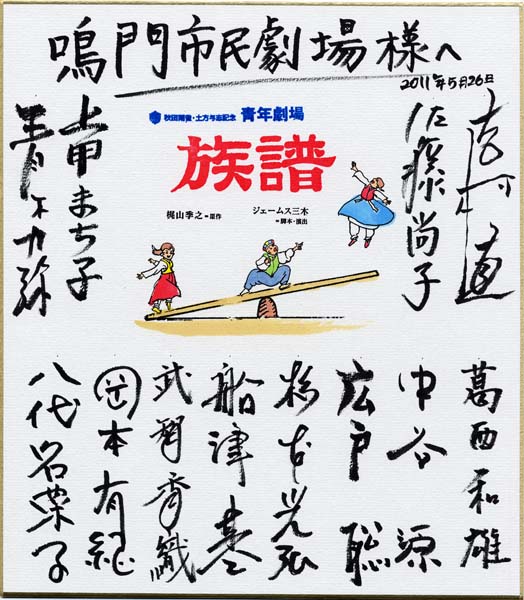 鳴門市民劇場様へ
2011年5月26日
秋田雨雀・土方与志記念 青年劇場
族譜
梶山季之=原作
ジェームス三木
=脚本・演出
吉村直
佐藤尚子
上甲まち子
青木力弥
葛西和雄
中谷源
広戸聡
杉本光弘
船津基
武智香織
岡本有紀
八代名菜子